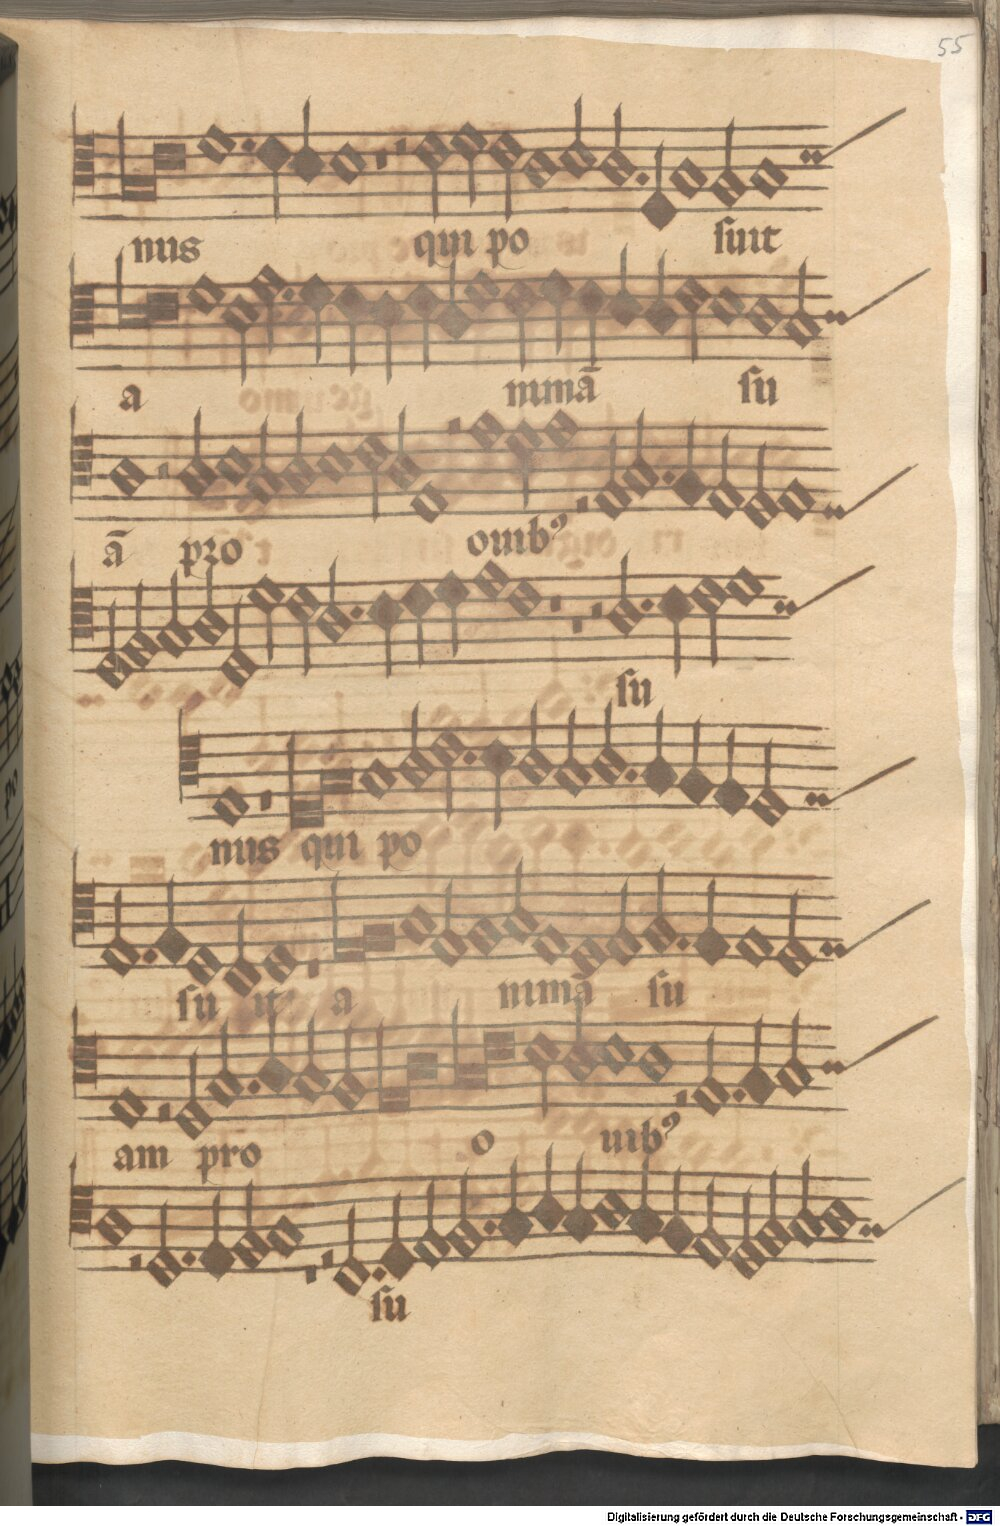 55
nus qui po suit
a nimā su
ā pro ouib⁹
su
nus qui po
su it a nimā su
am pro o uib⁹
su
Digitalisierung gefördert durch die Deutsche Forschungsgemeinschaft - DFG